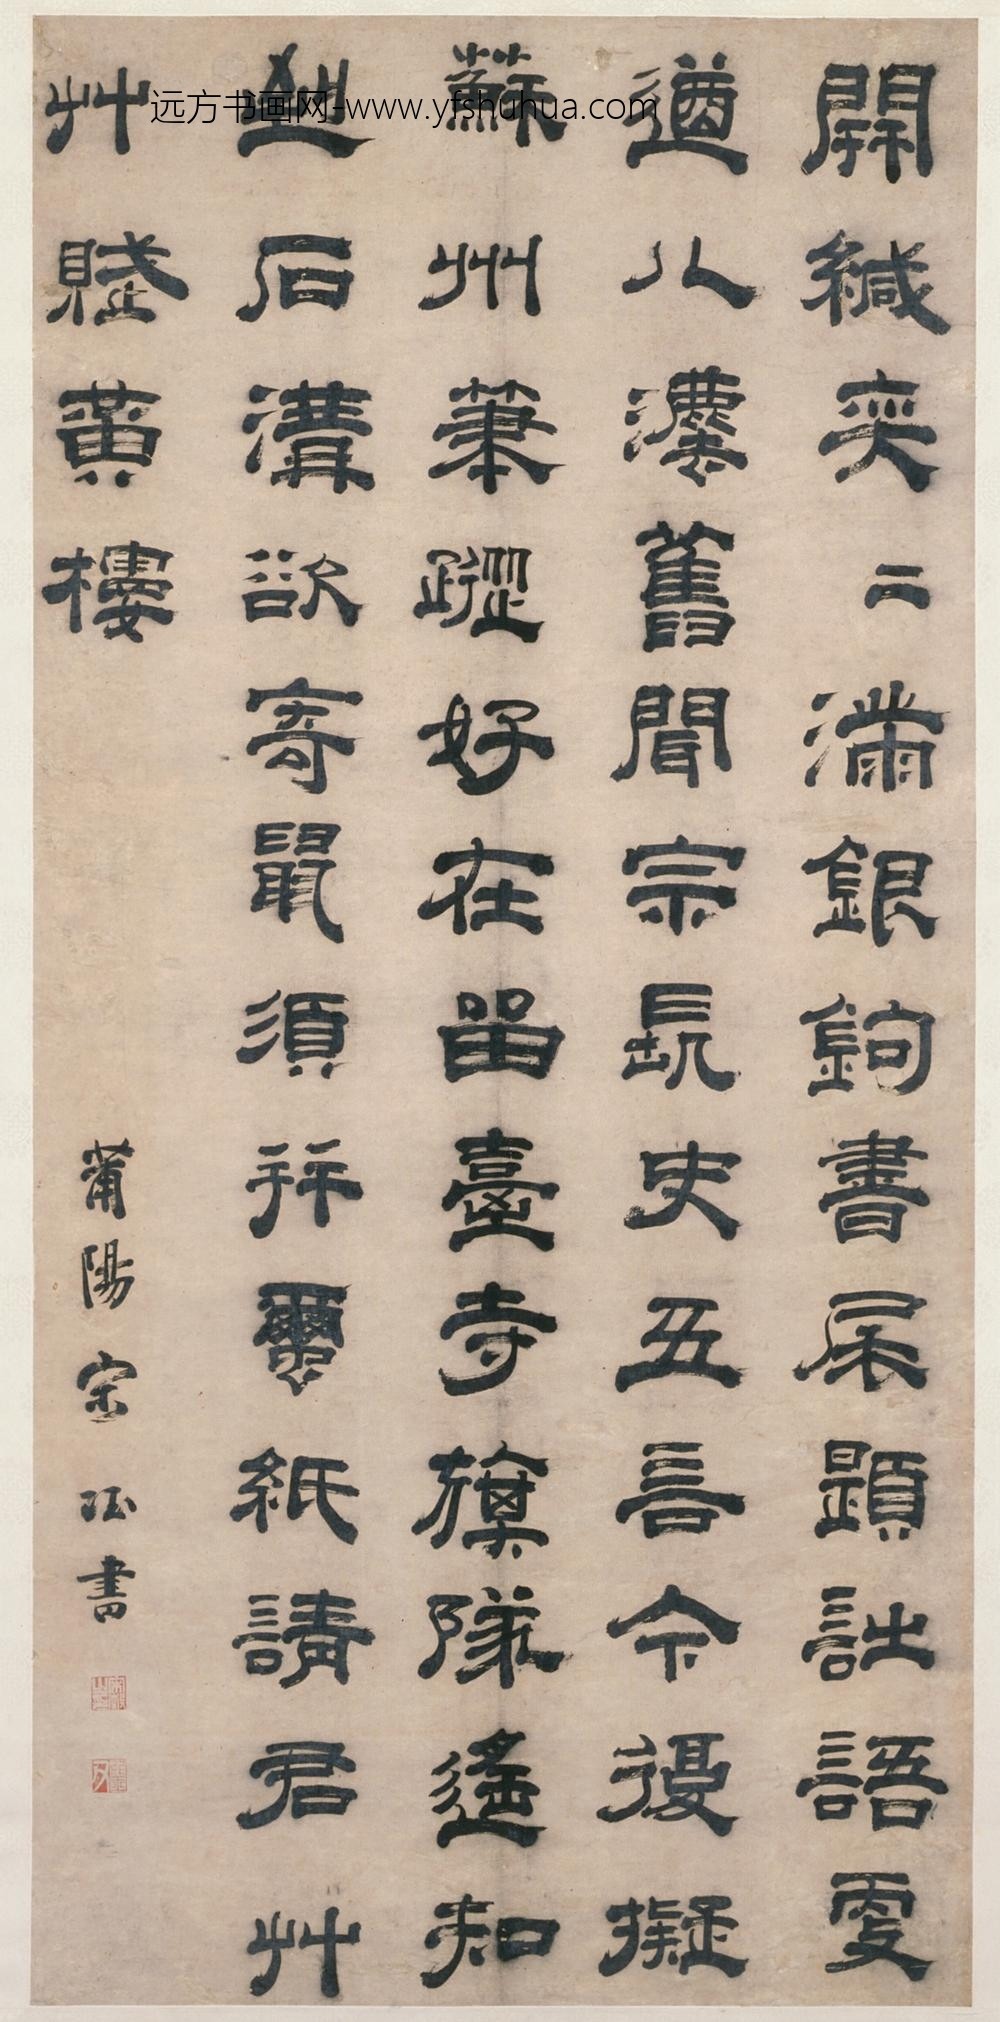 远方书画网-www.yfshuhua.com
開緘奕二滿銀鉤書尾題詩語更
遒八灋舊聞宗長史五言今復擬
蘇州筆蹤好在畱臺寺旗隊遙知
到石溝欲寄鼠須并繭紙請君艸
艸賦黃樓
莆陽宋珏書